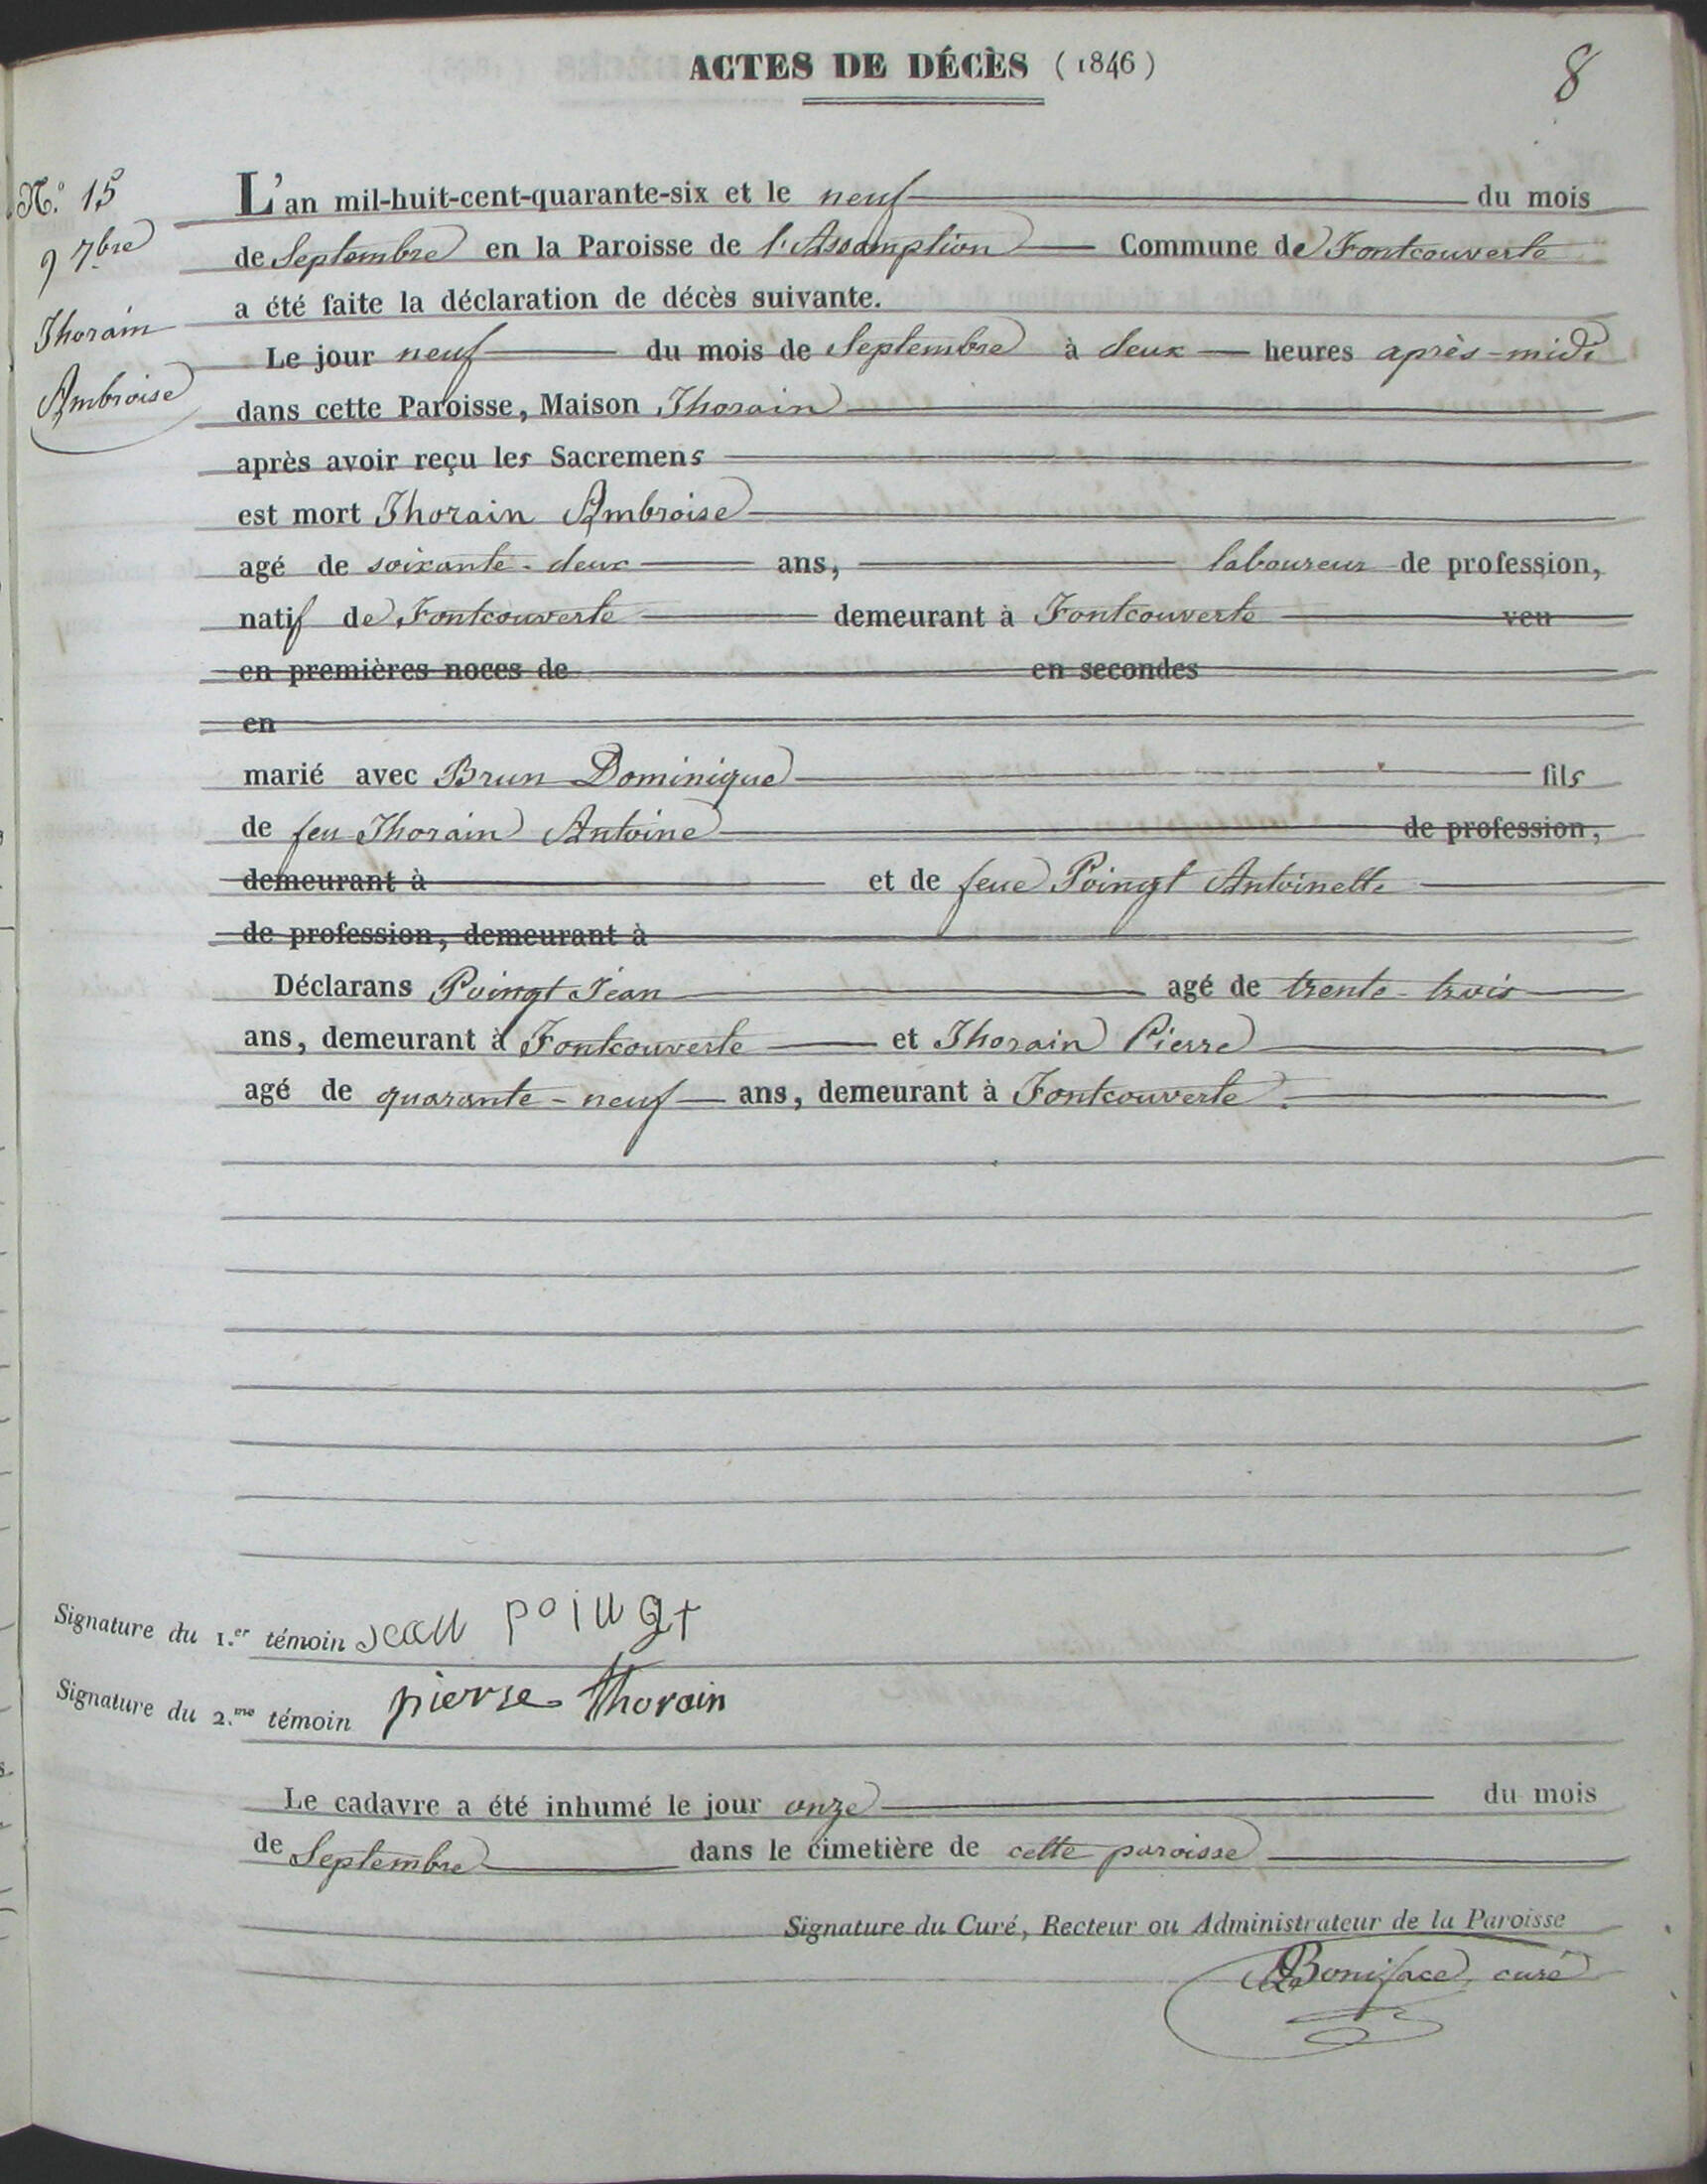 ACTES DE DÉCÈS (1846)
8
N.° 15
9 7bre
Thorain
Ambroise
L'an mil-huit-cent-quarante-six et le neuf du mois
de Septembre en la Paroisse de l'Assomption Commune de Fontcouverte
a été faite la déclaration de décès suivante.
Le jour neuf du mois de Septembre à deux heures après-midi
dans cette Paroisse, Maison Thorain
après avoir reçu les Sacremens
est mort Thorain Ambroise
agé de soixante-deux ans, laboureur de profession,
natif de Fontcouverte demeurant à Fontcouverte veu
en premières noces de en secondes
en
marié avec Brun Dominique fils
de feu Thorain Antoine de profession,
demeurant à et de feue Poingt Antoinette
de profession, demeurant à
Déclarans Poingt Jean agé de trente-trois
ans, demeurant à Fontcouverte et Thorain Pierre
agé de quarante-neuf ans, demeurant à Fontcouverte.
Signature du 1.er témoin Jean poingt
Signature du 2.me témoin pierre thorain
Le cadavre a été inhumé le jour onze du mois
de Septembre dans le cimetière de cette paroisse
Signature du Curé, Recteur ou Administrateur de la Paroisse
Boniface, curé